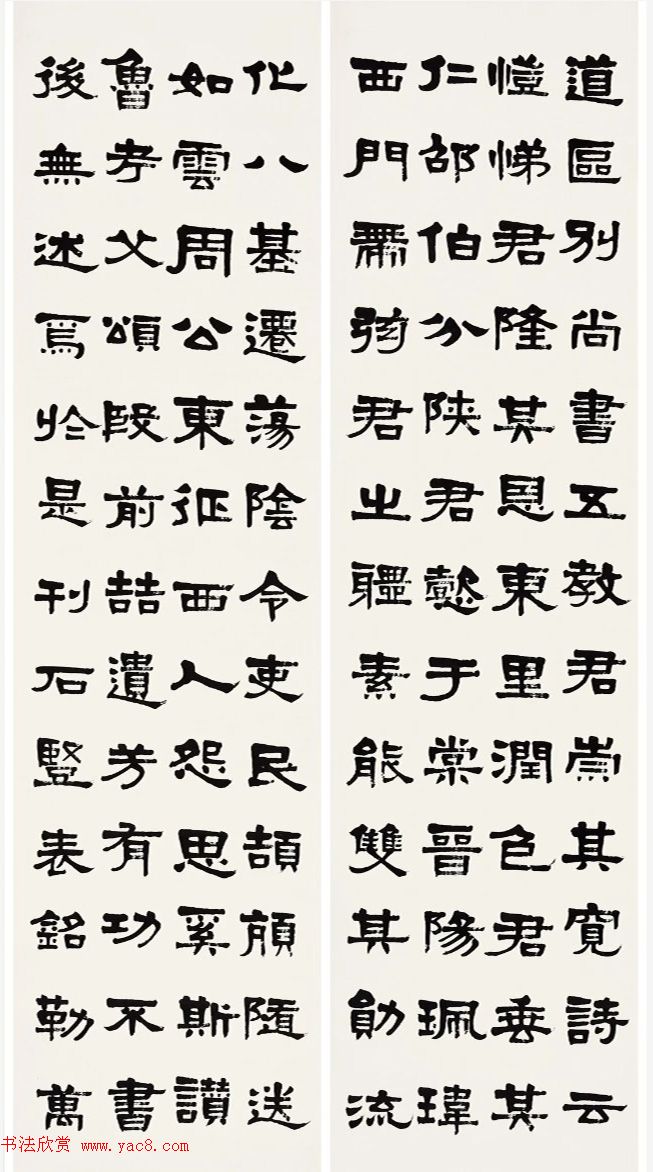 道區別尚書五教君崇其寬詩云
愷悌君隆其恩東里潤色君垂其
仁邵伯分陝君懿于棠晉陽珮瑋
西門帶弦君之體素能雙其勛流
化八基遷蕩陰令吏民頡頏隨送
如雲周公東征西人怨思奚斯讚
魯考父頌殷前喆遺芳有功不書
後無述焉於是刊石豎表銘勒萬
书法欣赏 www.yac8.com